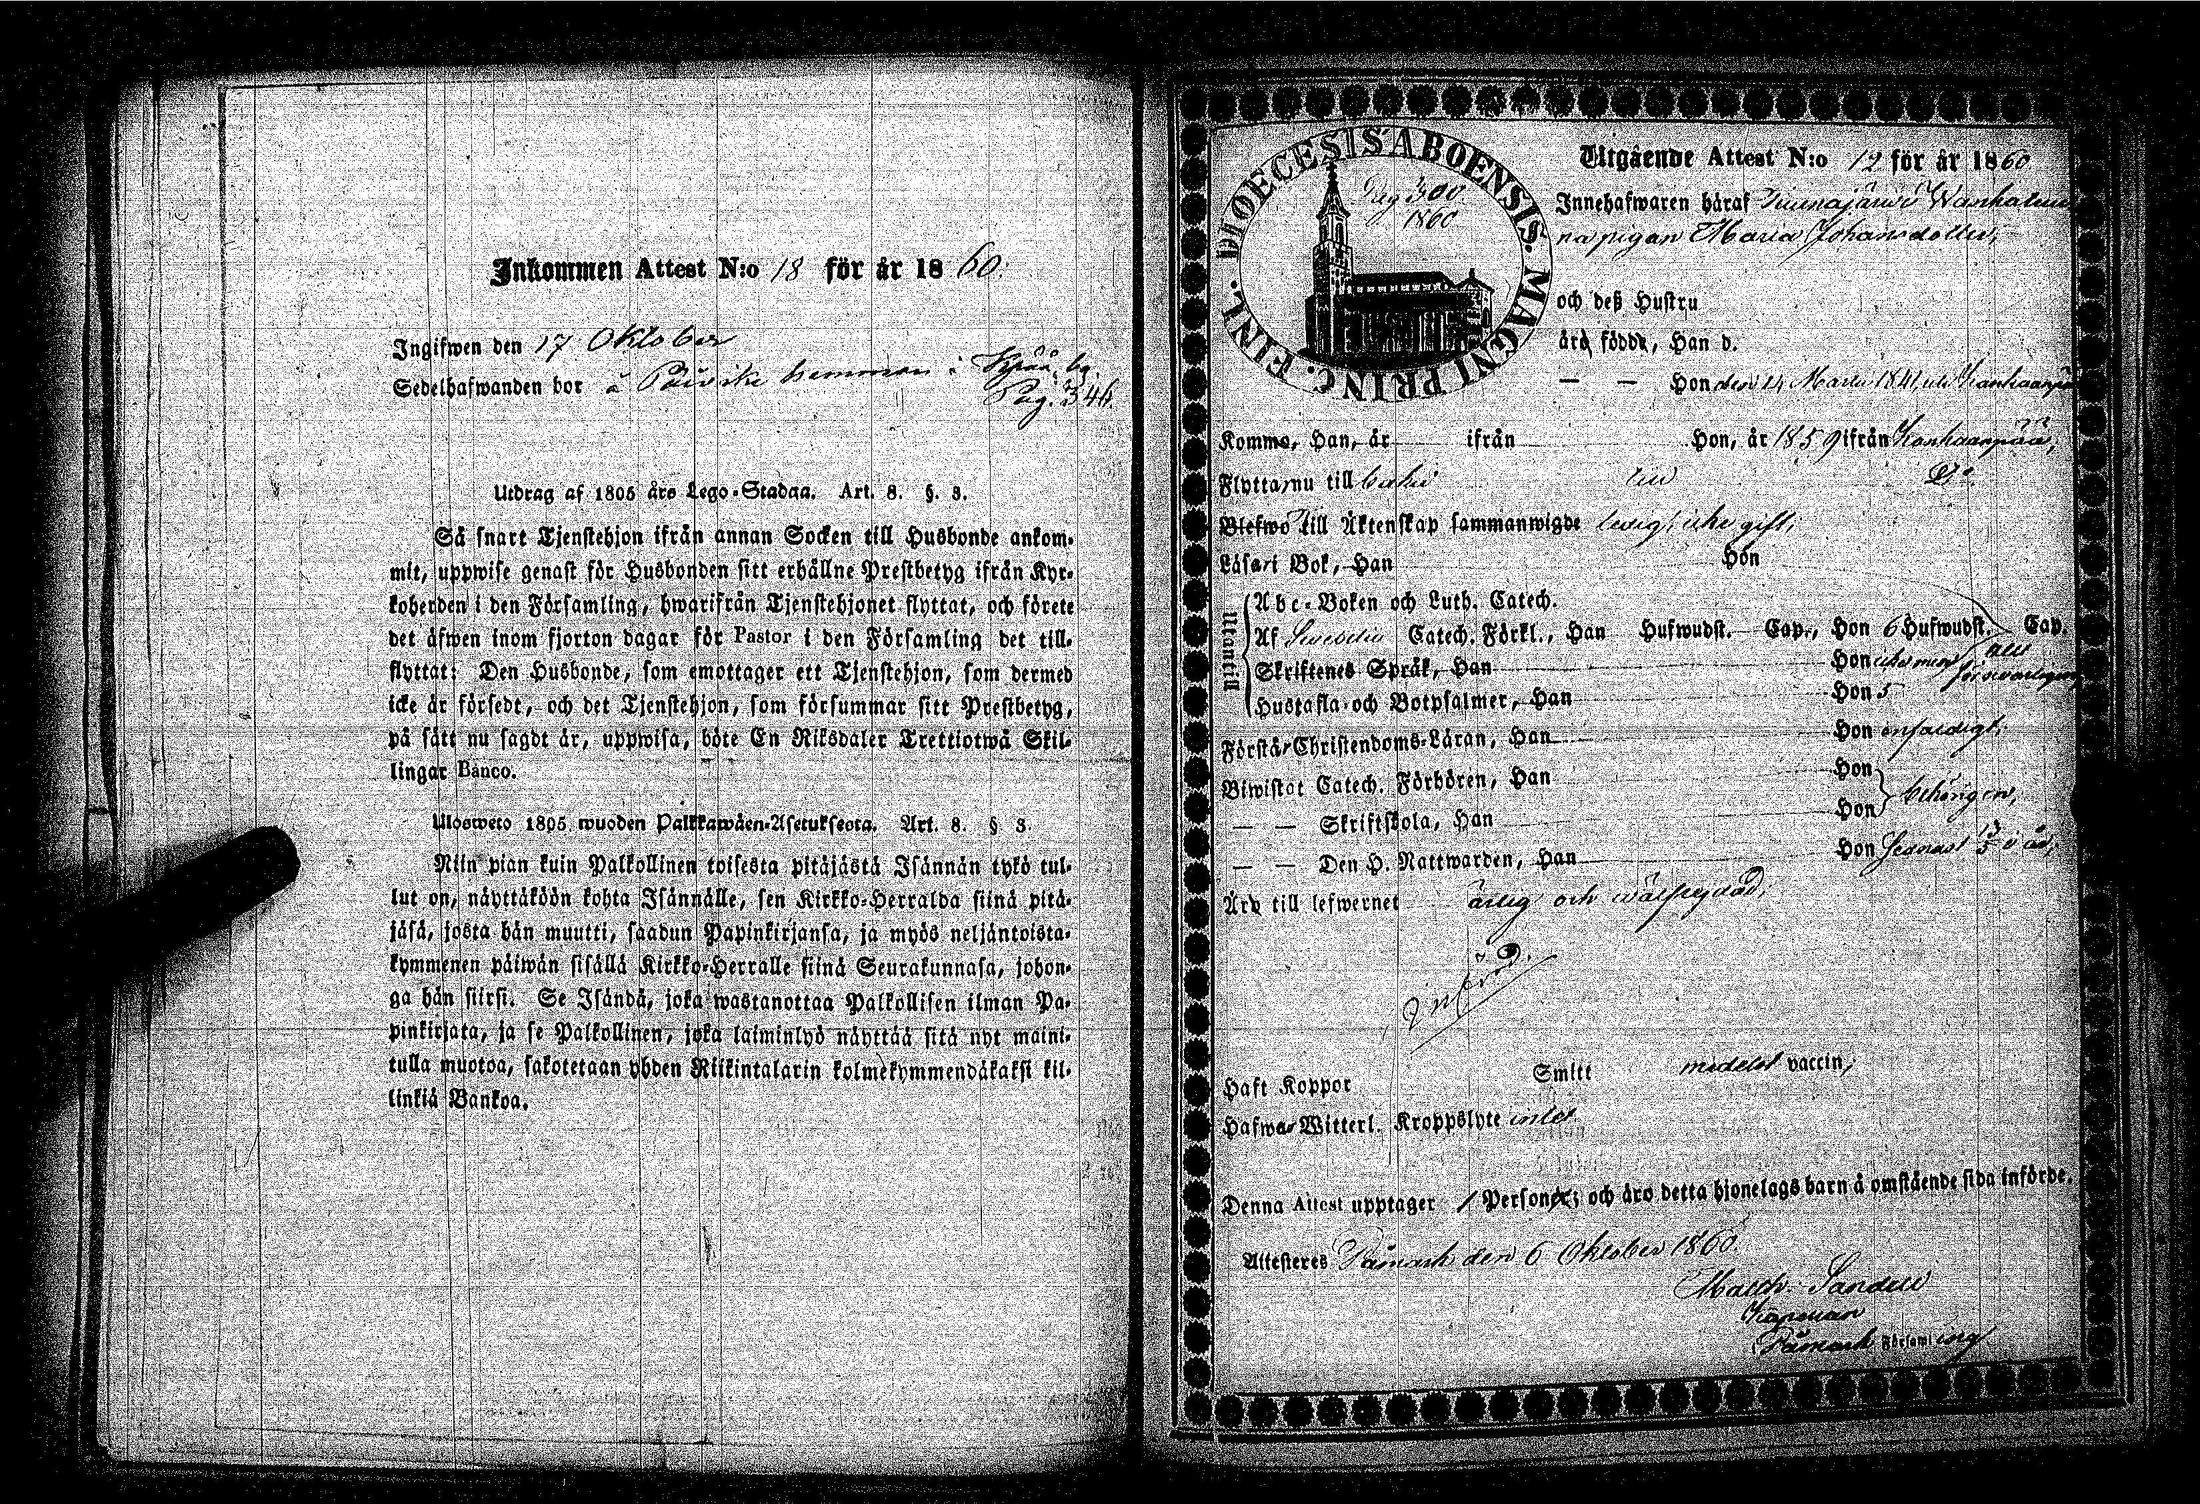 Inkommen Attest N:o 18 för år 1860.
Ingifwen den 17 Oktober
Sedelhafwanden bor å hemman i by.
Pag. 346.
Utdrag af 1805 års Lego-Stadga. Art. 8. §. 3.
Så snart Tjenstehjon ifrån annan Socken till Husbonde ankom-
mit, uppwise genast för Husbonden sitt erhållne Prestbetyg ifrån Kyr-
koherden i den Församling, hwarifrån Tjenstehjonet flyttat, och förete
det äfwen inom fjorton dagar för Pastor i den Församling det till-
flyttat: Den Husbonde, som emottager ett Tjenstehjon, som dermed
icke är försedt, och det Tjenstehjon, som försummar sitt Prestbetyg,
på sätt nu sagdt är, uppwisa, böte En Riksdaler Trettiotwå Skil-
lingar Banco.
Ulosweto 1805 wuoden Palkkawäen-Asetuksesta. Art. 8. § 3.
Niin pian kuin Palkollinen toisesta pitäjästä Isännän tykö tul-
lut on, näyttäköön kohta Isännälle, sen Kirkko-Herralda siinä pitä-
jäsä, josta hän muutti, saadun Papinkirjansa, ja myös neljäntoista-
kymmenen päiwän sisällä Kirkko-Herralle siinä Seurakunnasa, johon-
ga hän siirsi. Se Isändä, joka wastanottaa Palkollisen ilman Pa-
pinkirjata, ja se Palkollinen, joka laiminlyö näyttää sitä nyt maini-
tulla muotoa, sakotetaan yhden Riikintalarin kolmekymmendäkaksi kil-
linkiä Bankoa.
DIOECESIS ABOENSIS. MAGNI PRINC. FINL.
Pag 300
1860
Utgående Attest N:o 12 för år 1860
Innehafwaren häraf
na pigan Maria Johansdotter,
och deß Hustru
äro födde, Han d.
— — Hon den 14 Martii 1841 uti Kankaanpä
Komme, Han, år ifrån Hon, år 1859 ifrån Kankaanpää,
Flytta nu till D:o
Blefwo till Äktenskap sammanwigde ledig, icke gift,
Läsa i Bok, Han Hon
Utantill
Abc-Boken och Luth. Catech.
Af Svebelii Catech. Förkl., Han Hufwudst. Cap., Hon 6 Hufwudst. Cap.
Skriftenes Språk, Han Hon
Hustafla och Botpsalmer, Han Hon 5
Förstår Christendoms-Läran, Han Hon enfaldigt,
Biwistat Catech. Förhören, Han Hon
— — Skriftskola, Han Hon behörigen,
— — Den H. Nattwarden, Han Hon senast
Äro till lefwernet ärlig och wälfrejdad,
Införd.
Haft Koppor Smitt medelst vaccin,
Hafwa Witterl. Kroppslyte intet
Denna Attest upptager 1 Personer; och äro detta hjonelags barn å omstående sida införde.
Attesteres Påmark den 6 Oktober 1860.
Matth. Sandell
Kapellan
i Påmark Församling